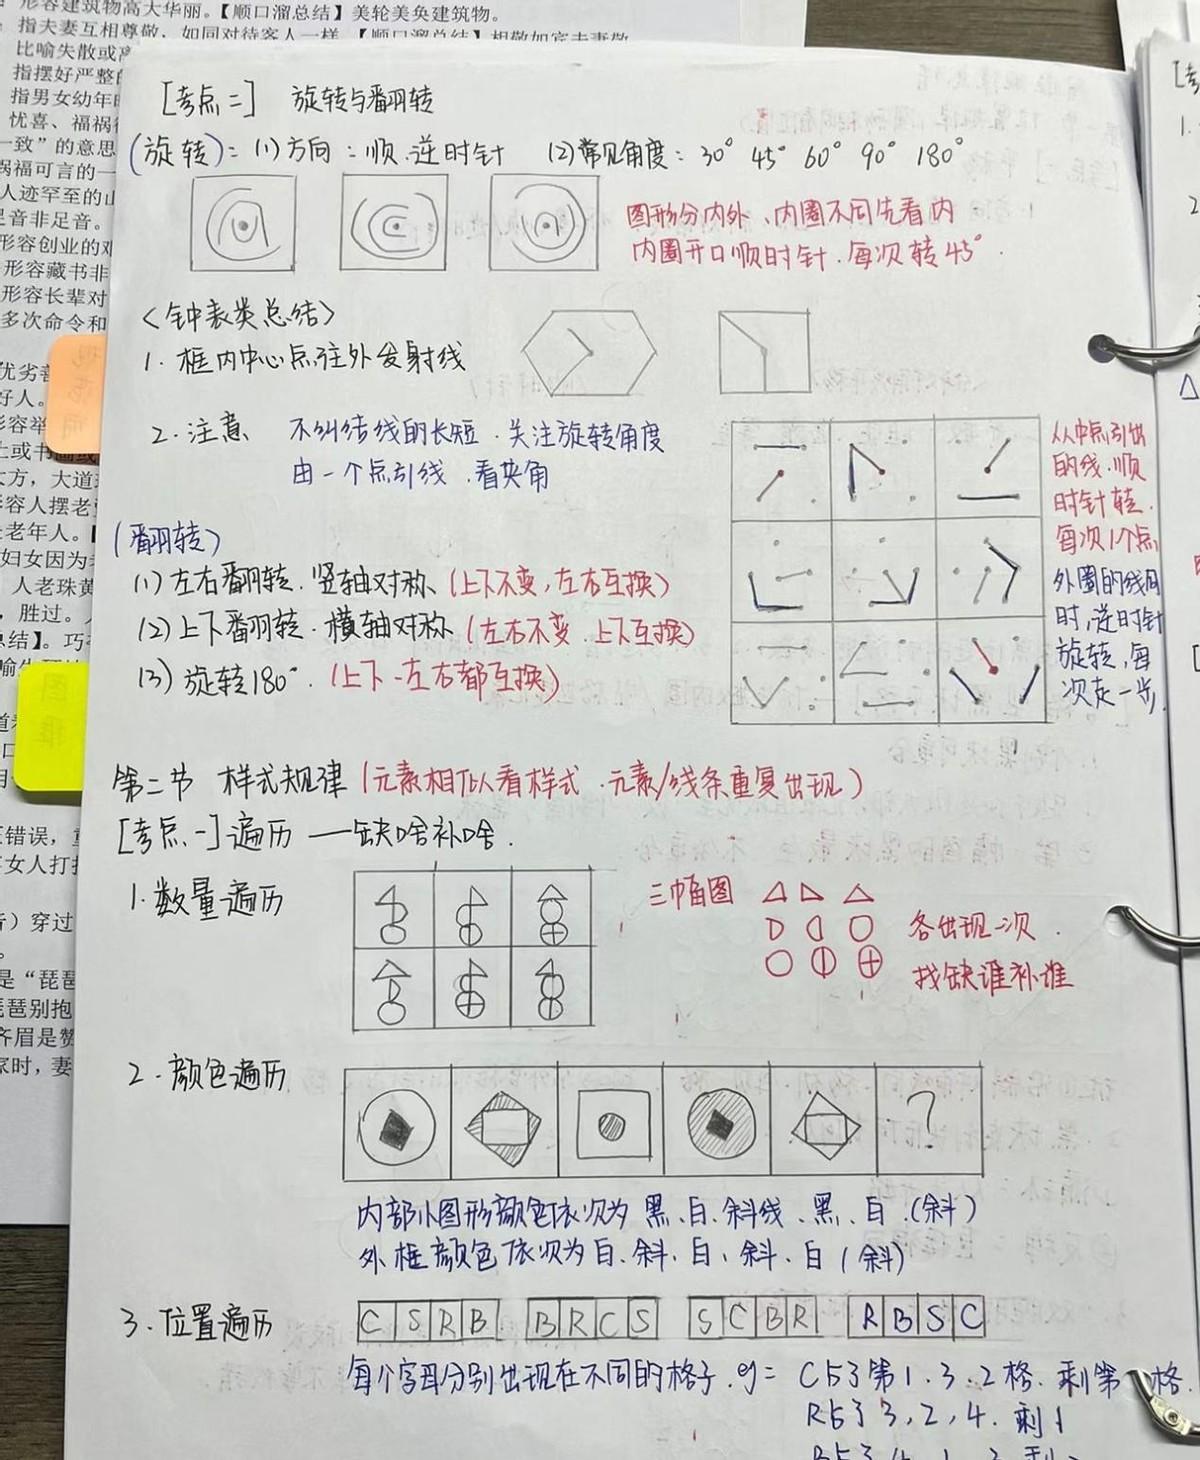 形容建筑物高大华丽。【顺口溜总结】美轮美奂建筑物。
指夫妻互相尊敬，如同对待客人一样。【顺口溜总结】相敬如宾夫妻敬
比喻失散或
指摆好严整
指男女幼年
忧喜、福祸
一致”的意思
祸福可言的一
人迹罕至的山
足音非足音。
形容创业的艰
形容藏书非
形容长辈对
多次命令和
[考点二] 旋转与翻转
(旋转): (1)方向: 顺.逆时针 (2)常见角度: 30° 45° 60° 90° 180°
图形分内外、内圈不同先看内
内圈开口顺时针.每次转45°.
<钟表类总结>
1.框内中心点往外发射线
2.注意 不纠结线的长短.关注旋转角度
由一个点引线.看夹角
从中点引出
的线.顺
时针转.
每次1个点
外圈的线同
时,逆时针
旋转,每
次走一步.
(翻转)
(1)左右翻转.竖轴对称(上下不变,左右互换)
(2)上下翻转.横轴对称(左右不变.上下互换)
(3)旋转180°.(上下.左右都互换)
第二节 样式规律(元素相似看样式.元素/线条重复出现)
[考点一]遍历——缺啥补啥.
1.数量遍历
三幅图
各出现一次.
找缺谁补谁
2.颜色遍历
?
内部小图形颜色依次为 黑、白、斜线、黑、白.(斜)
外框颜色依次为白、斜、白、斜、白(斜)
3.位置遍历
C S R B B R C S S C B R R B S C
每个字母分别出现在不同的格子.eg= C占了第1.3.2格.剩第 格.
R占了3,2,4.剩1